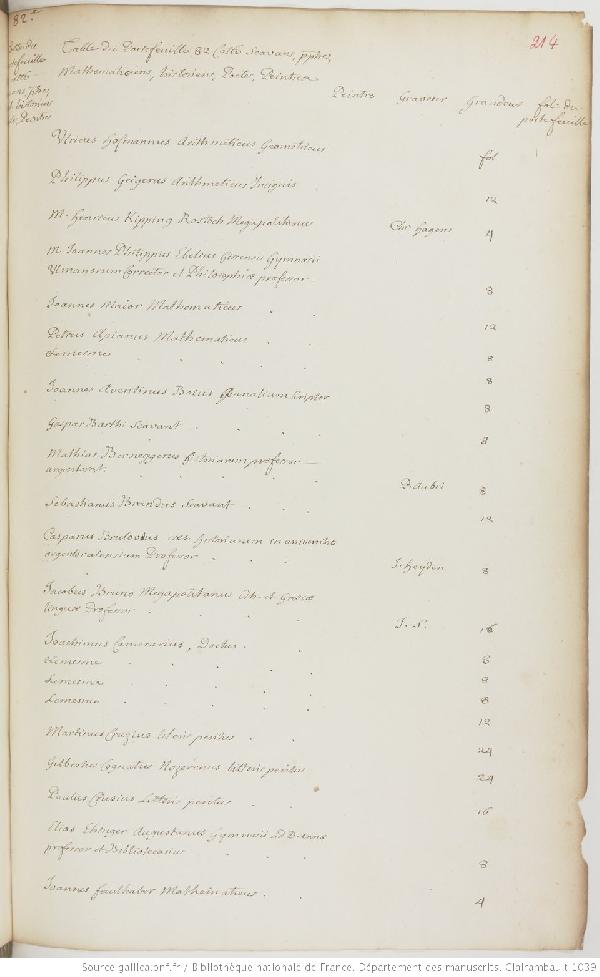 82.e
214
Table du Portefeuille 82 Cotté Scavans, pptres,
Mathematiciens, historiens, Poetes, Peintres
Peintre Graveur Grandeur fol. du
portefeuille
Ulricus Hofmannus Arithmeticus Geometricus
fol
Philippus Geigerus Arithmeticus Insignis
12
M. Henricus Kipping Rostoch Megapolitanus Chr. hagens 4
M. Joannes Philippus Ebelius Gymnasii
Ulmanorum Corrector et Philosophiæ professor
8
Joannes Maior Mathematicus
12
Petrus Apianus Mathematicus
8
Lemesme
8
Joannes Aventinus Boius Annalium Scriptor
8
Gaspar Barthi Scavant
8
Mathias Berneggerus historiarum professor
argentorat. P. aubri 8
Sebastianus Brandus Scavant
12
Casparus Brulovius historiarum in
argentoratensium Professor J. Heyden 8
Jacobus Bruno Megapolitanus et Græcæ
linguæ Professor J. N. 16
Joachimus Camerarius, Doctus
8
Lemesme
9
Lemesme
8
Lemesme
12
Martinus Crusius litteris peritus
24
Gilbertus Cognatus Nozerenus litteris peritus
24
Paulus Crusius Litteris peritus
16
Elias Ehinger Augustanus Gymnasii ad D. Annæ
professor et Bibliotecarius
8
Joannes faulhaber Mathematicus
4
Source gallica.bnf.fr / Bibliothèque nationale de France. Département des manuscrits. Clairambault 1039